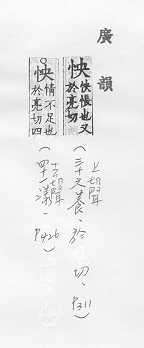 廣韻
怏 怏悵也又
於亮切
(上聲
三十六養、於 切、P311
怏 情不足也
於亮切四
(去聲
四十一漾、P426